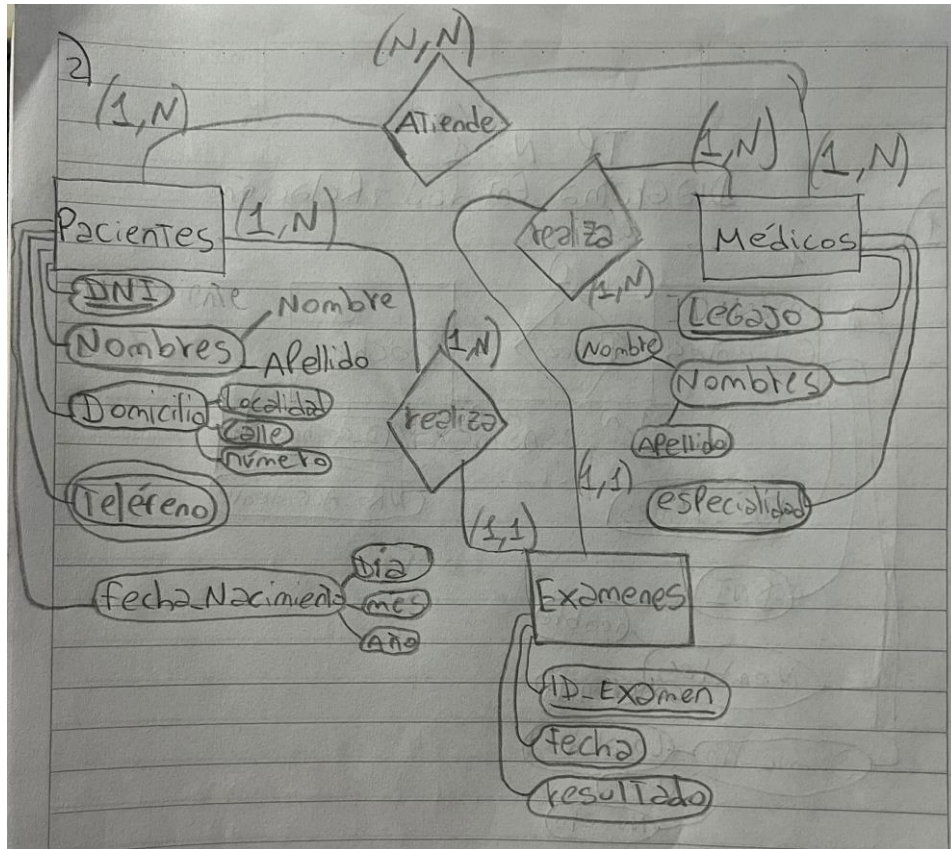 2)
(N,N)
ATiende
(1,N)
(1,N)
(1,N)
Pacientes
(1,N)
realiza
(1,N)
Médicos
DNI
Nombres
Nombre
Apellido
Domicilio
Localidad
Calle
número
Teléreno
fecha_Nacimiento
Día
mes
Año
(1,N)
realiza
(1,1)
(1,1)
Legajo
Nombre
Nombres
Apellido
especialidad
Exámenes
ID_Examen
fecha
resultado